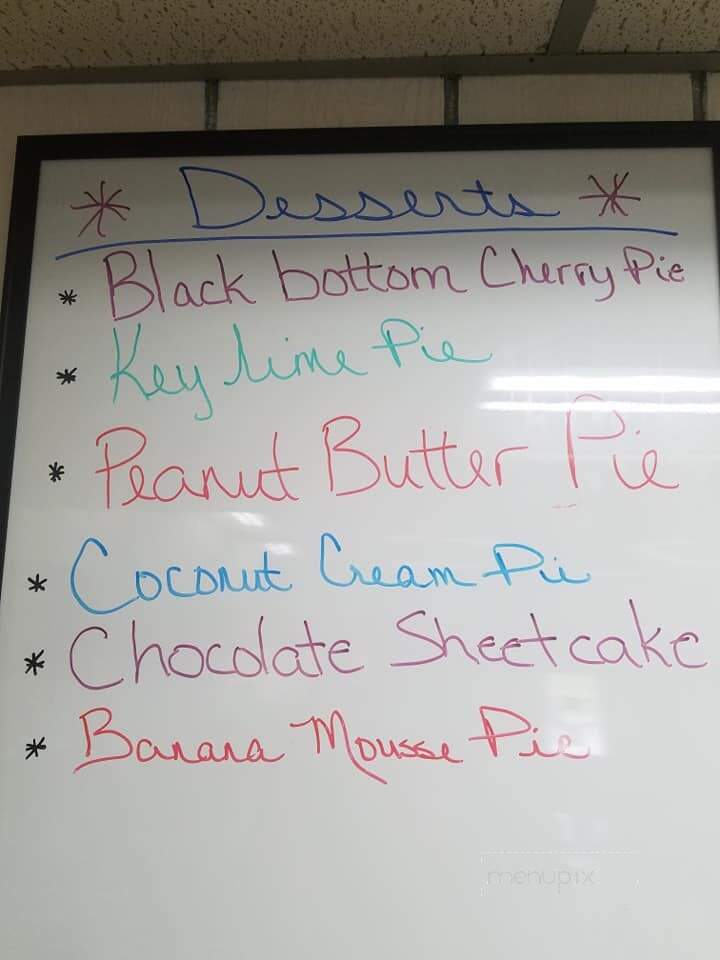 * Desserts *
* Black bottom Cherry Pie
* Key lime Pie
* Peanut Butter Pie
* Coconut Cream Pie
* Chocolate Sheet cake
* Banana Mousse Pie
menupix